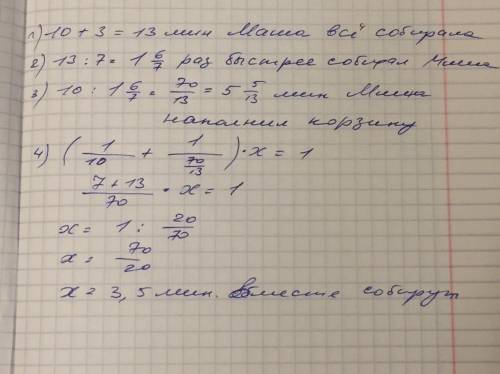 1) 10 + 3 = 13 мин Маша всё собирала
2) 13 : 7 = 1 6/7 раз быстрее собирал Миша
3) 10 : 1 6/7 = 70/13 = 5 5/13 мин Миша
наполнил корзину
4) (1/10 + 1/(70/13)) · x = 1
(7 + 13)/70 · x = 1
x = 1 : 20/70
x = 70/20
x = 3,5 мин. вместе соберут